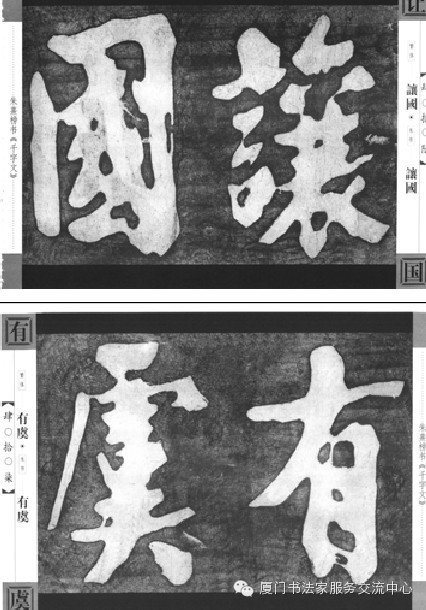 让
讓國
讓國
国
讓國
朱熹榜书《千字文》
朱熹榜书《千字文》
有虞
有
有虞
有虞
【肆〇拾〇柒】
虞
厦门书法家服务交流中心